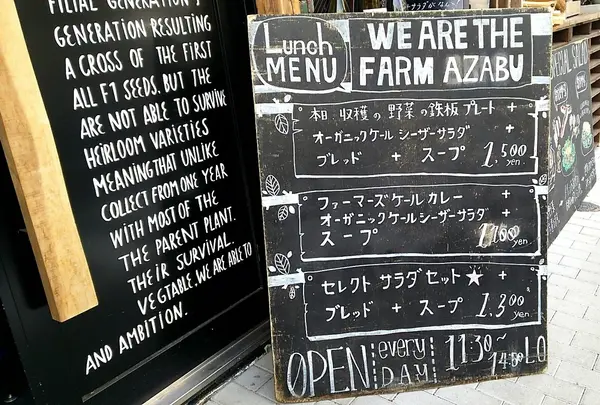 FILIAL GENERATION,
GENERATION RESULTING
A CROSS OF THE FIRST
ALL F1 SEEDS. BUT THE
ARE NOT ABLE TO SURVIVE
HEIRLOOM VARIETIES
MEANING THAT UNLIKE
COLLECT FROM ONE YEAR
WITH MOST OF THE
THE PARENT PLANT.
THEIR SURVIVAL.
VEGTABLE. WE ARE ABLE TO
AND AMBITION.
Lunch MENU
WE ARE THE
FARM AZABU
本日 収穫の 野菜の鉄板プレート +
オーガニックケールシーザーサラダ
ブレッド + スープ 1,500 yen
ファーマーズケールカレー +
オーガニックケールシーザーサラダ +
スープ yen
セレクト サラダセット★ +
ブレッド + スープ 1,300 yen
OPEN every DAY 11:30~ LO